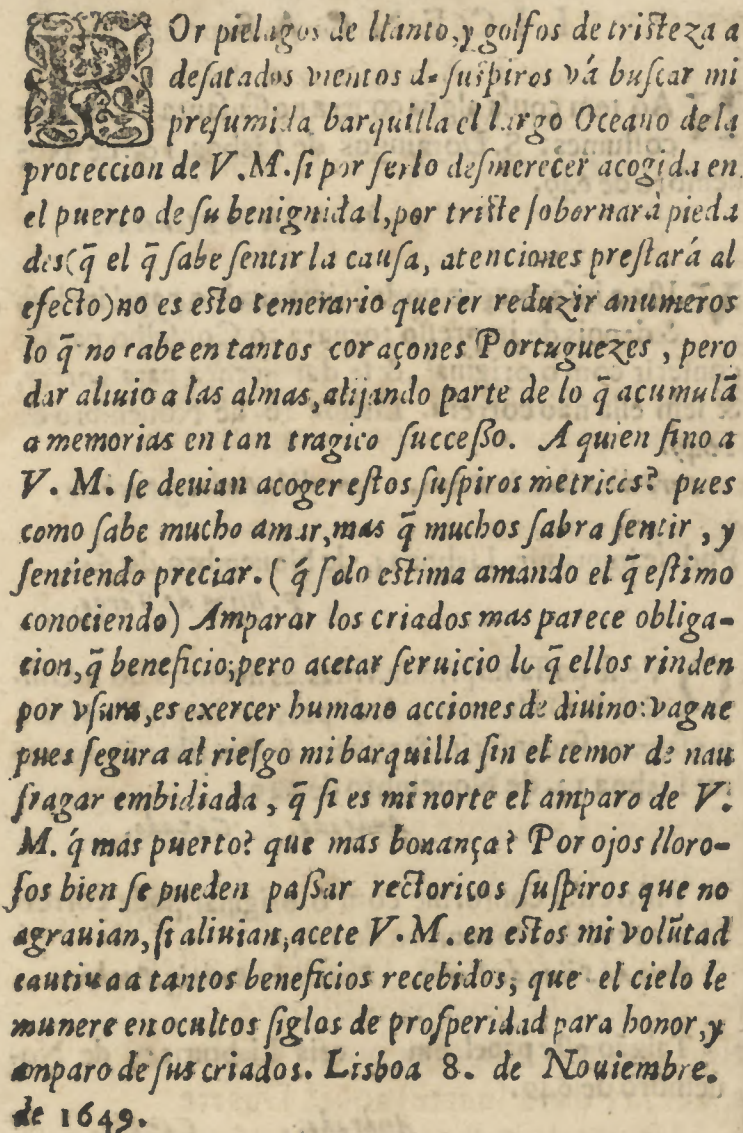 POr pielagos de llanto, y golfos de tristeza a
desatados vientos de suspiros vá buscar mi
presumida barquilla el largo Oceano de la
proteccion de V.M. si por serlo desmerecer acogida en
el puerto de su benignidad, por triste sobornarà pieda
des(q̃ el q̃ sabe sentir la causa, atenciones prestará al
efecto)no es esto temerario querer reduzir anumeros
lo q̃ no cabe en tantos coraçones Portuguezes, pero
dar aliuio a las almas, alijando parte de lo q̃ acumulã
a memorias en tan tragico successo. A quien sino a
V. M. se deuian acoger estos suspiros metricos? pues
como sabe mucho amar, mas q̃ muchos sabra sentir, y
sentiendo preciar. ( q́ solo estima amando el q̃ estimo
conociendo) Amparar los criados mas parece obliga-
cion, q̃ beneficio; pero acetar seruicio lo q̃ ellos rinden
por vsura, es exercer humano acciones de diuino: vague
pues segura al riesgo mi barquilla sin el temor de nau
fragar embidiada, q̃ si es mi norte el amparo de V.
M. q́ mas puerto? que mas bonança? Por ojos lloro-
sos bien se pueden passar rectoricos suspiros que no
agrauian, si aliuian, acete V.M. en estos mi volũtad
cautiua a tantos beneficios recebidos, que el cielo le
munere en ocultos siglos de prosperidad para honor, y
amparo de sus criados. Lisboa 8. de Nouiembre.
de 1649.